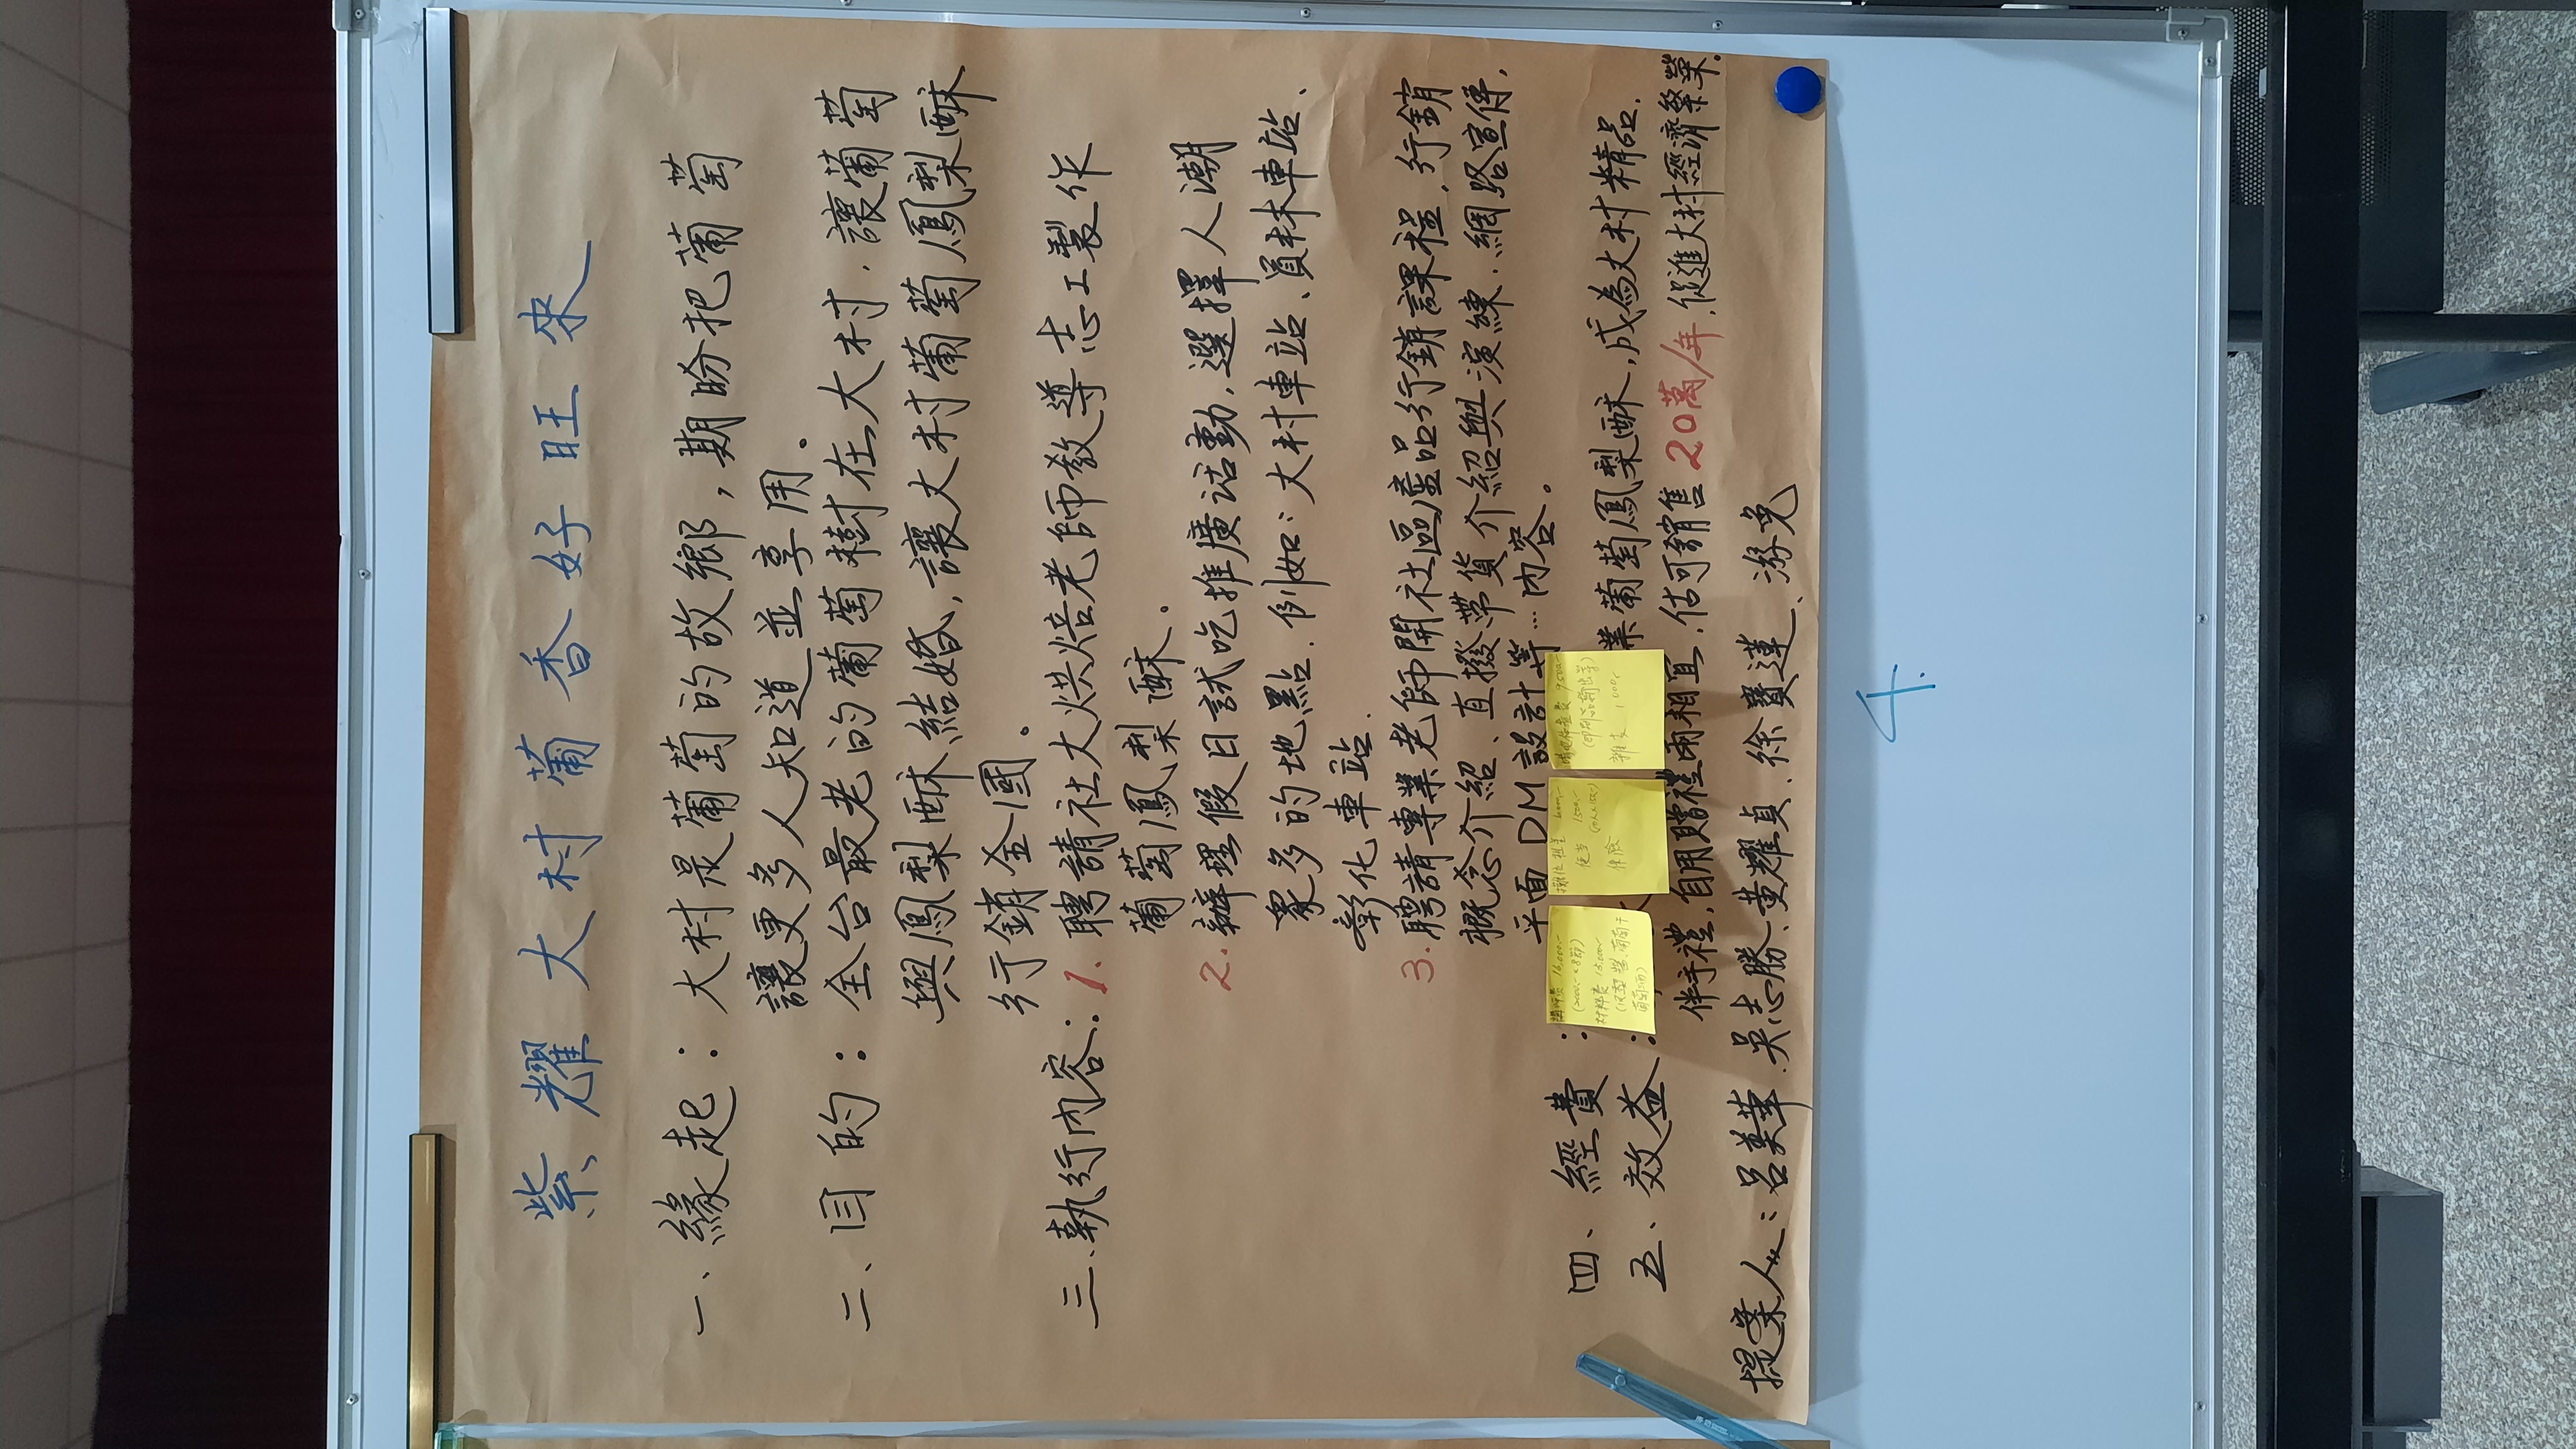 紫耀大村葡香好旺來
一、緣起：大村是葡萄的故鄉，期盼把葡萄
讓更多人知道並享用。
二、目的：全台最老的葡萄樹在大村，讓葡萄
與鳳梨酥結婚，讓大村葡萄鳳梨酥
行銷全國。
三、執行內容：1. 聘請社大烘焙老師教導志工製作
葡萄鳳梨酥。
2. 辦理假日試吃推廣活動，選擇人潮
衆多的地點．例如：大村車站、員林車站、
彰化車站．
3. 聘請專業老師開社區產品行銷課程，行銷
概念介紹、直撥帶貨介紹與演練．網路宣傳，
平面DM設計等…內容。
四、經費：
講師費 16,000.-
(2000.-×8節)
材料費 15,000-
攤位租金
便當 1500.-
保險
雜支
五、效益：
業葡萄鳳梨酥，成為大村精品．
伴手禮，自用贈禮兩相宜，估可銷售20萬/年，促進大村經濟繁榮．
提案人：呂美華．吳志勝、黃耀貞、徐寶蓮、游免
4.